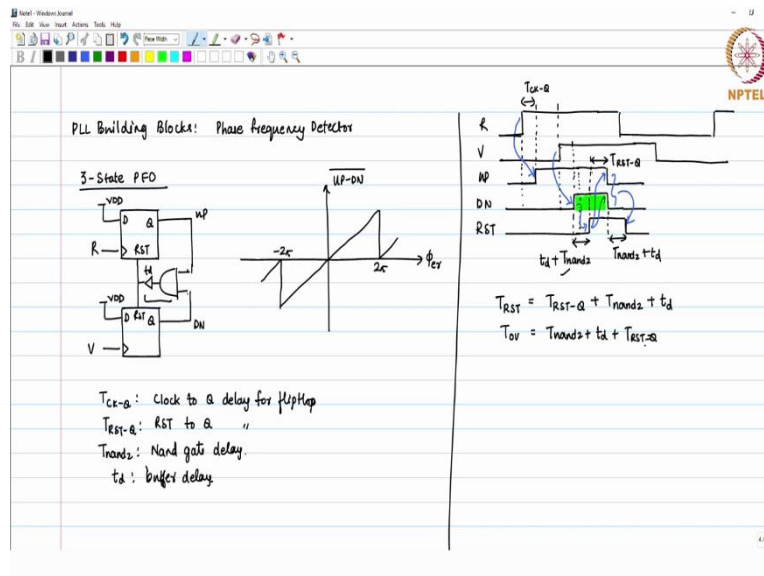 Note1 - Windows Journal
File Edit View Insert Actions Tools Help
Pen Width
B I
NPTEL
PLL Building Blocks: Phase frequency Detector
3-State PFD
VDD
D Q
UP
R
RST
td
VDD
D RST Q
DN
V
UP-DN
-2π
2π
Φer
TCK-Q: Clock to Q delay for flipflop
TRST-Q: RST to Q "
Tnand2: Nand gate delay.
td: buffer delay
TCK-Q
R
V
TRST-Q
UP
DN
RST
td + Tnand2
Tnand2 + td
TRST = TRST-Q + Tnand2 + td
Tov = Tnand2 + td + TRST-Q